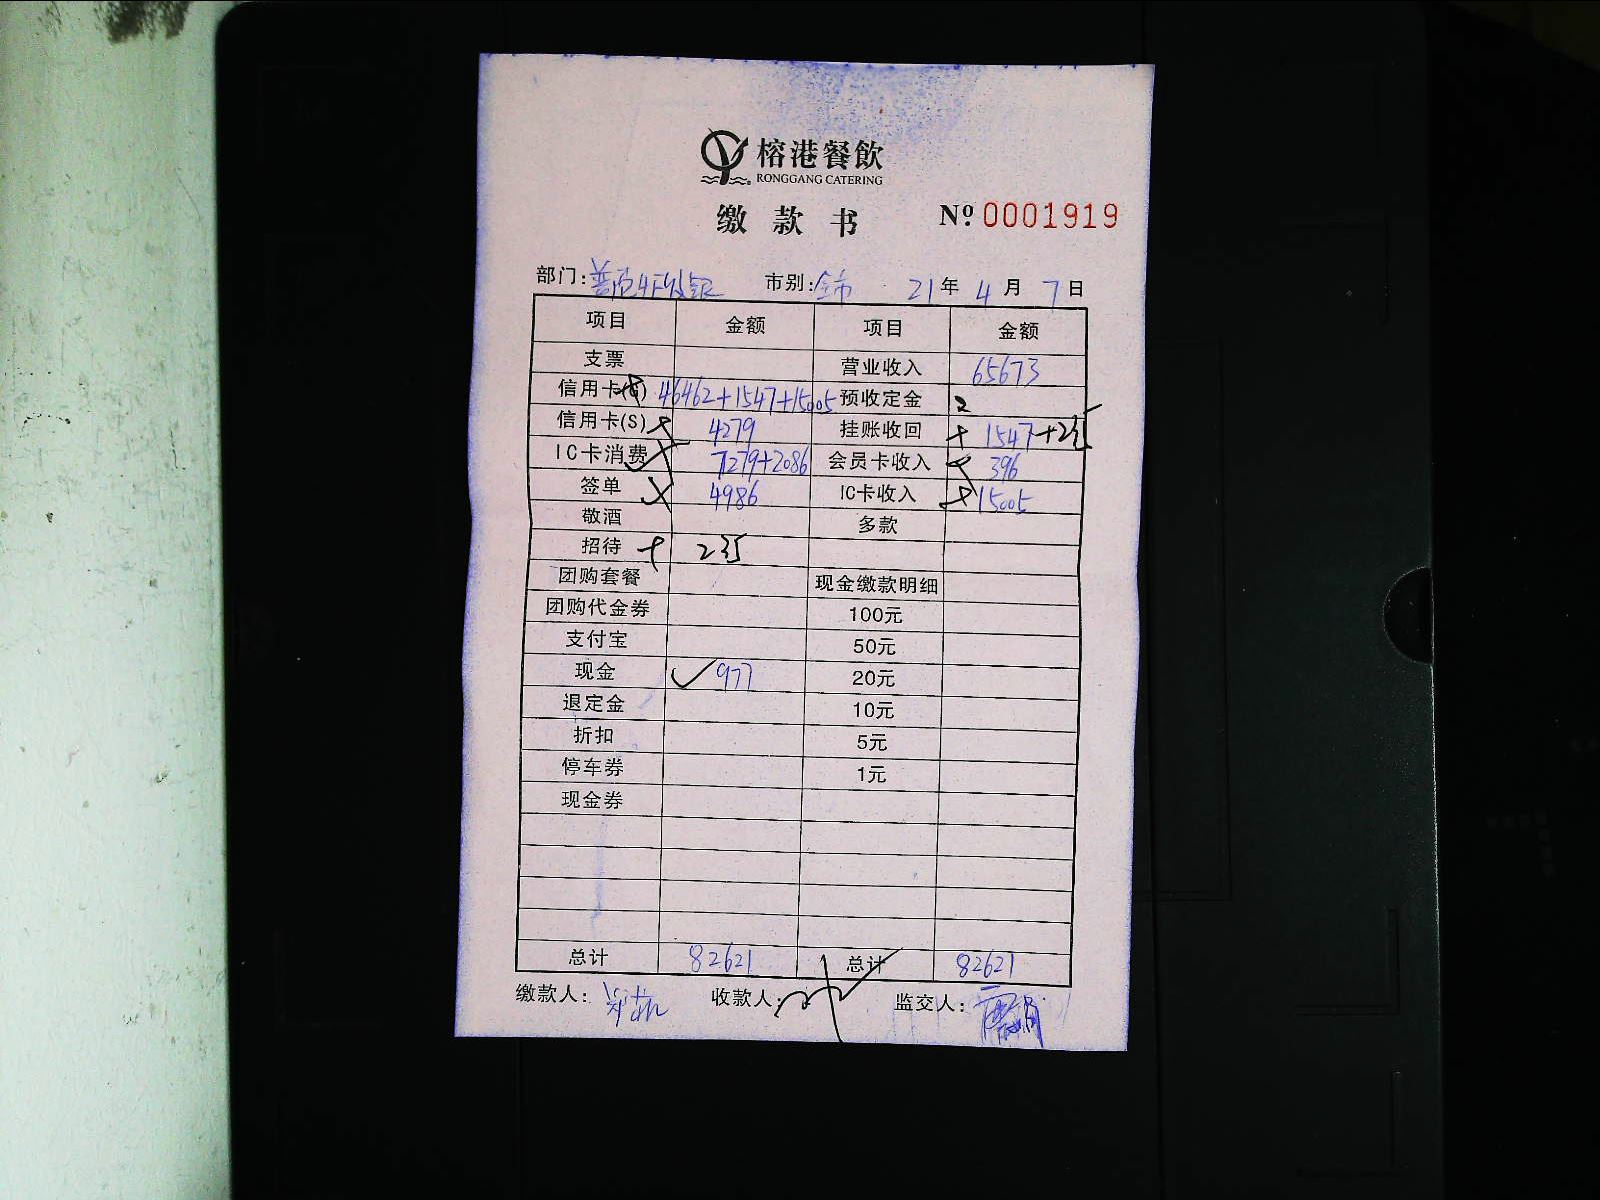 榕港餐飲
RONGGANG CATERING
缴款书 Nº 0001919
部门: 市别:全市 21年4月7日
项目 金额 项目 金额
支票 营业收入 65673
信用卡(G) 46462+1547+15005 预收定金
信用卡(S) 4279 挂账收回 1547+235
IC卡消费 7279+2086 会员卡收入 396
签单 4986 IC卡收入 15005
敬酒 多款
招待 235
团购套餐 现金缴款明细
团购代金券 100元
支付宝 50元
现金 977 20元
退定金 10元
折扣 5元
停车券 1元
现金券
总计 82621 总计 82621
缴款人: 收款人: 监交人: